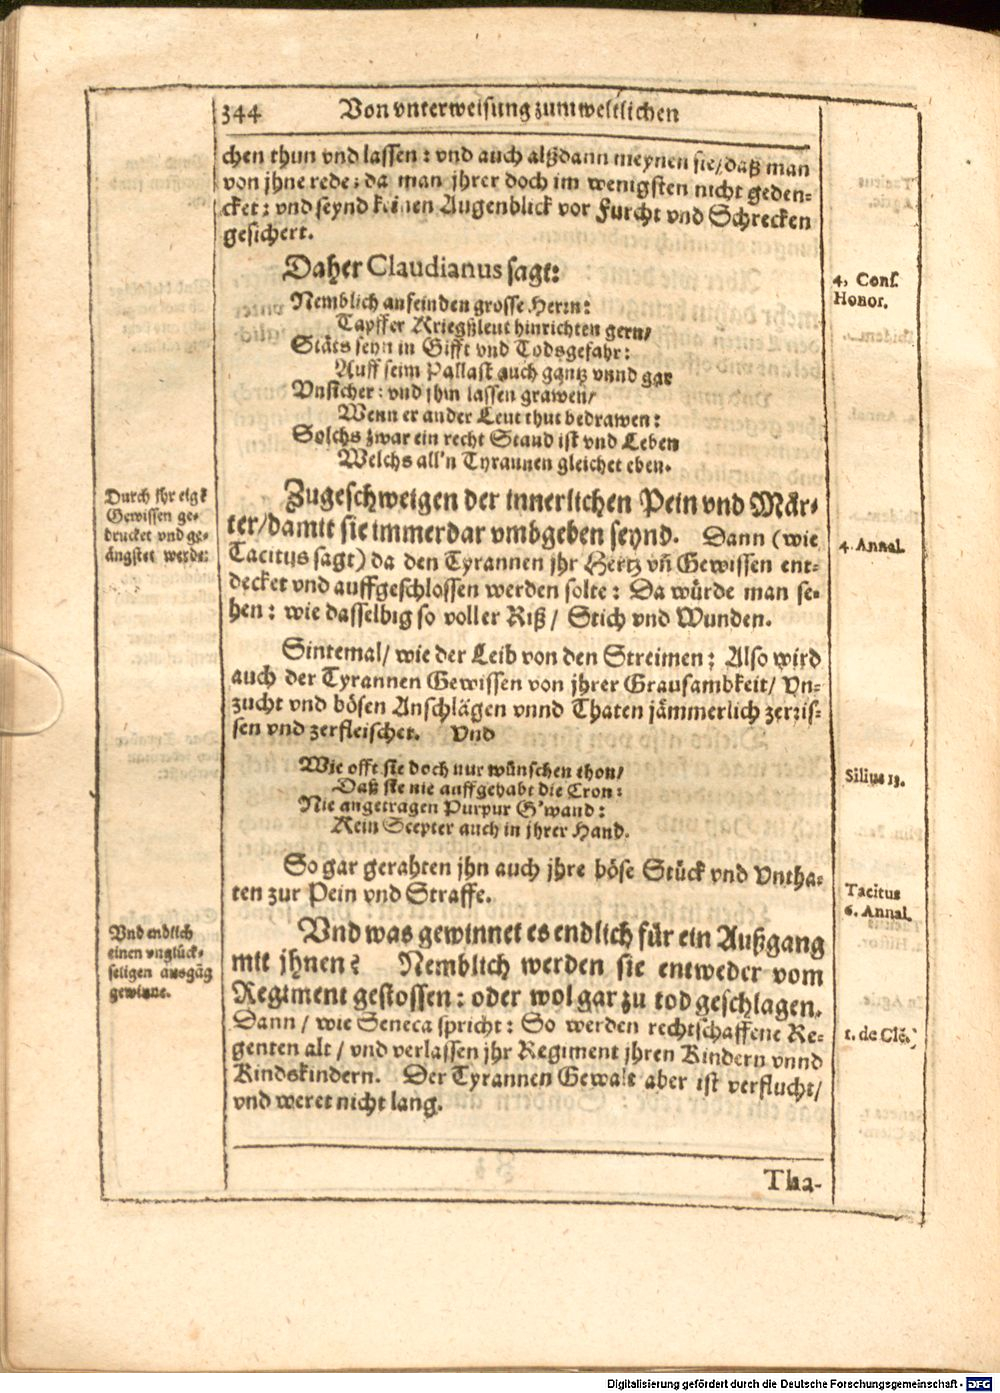 344 Von vnterweisung zum weltlichen
chen thun vnd lassen: vnd auch alßdann meynen sie/ daß man
von jhne rede: da man jhrer doch im wenigsten nicht geden-
cket: vnd seynd keinen Augenblick vor Furcht vnd Schrecken
gesichert.
Daher Claudianus sagt:
4. Cons.
Honor.
Nemblich anfeinden grosse Herrn:
Tapffer Kriegßleut hinrichten gern/
Stäts seyn in Gifft vnd Todsgefahr:
Auff seim Pallast auch gantz vnnd gar
Vnsicher: vnd jhm lassen grawen/
Wenn er ander Leut thut bedrawen:
Solchs zwar ein recht Stand ist vnd Leben
Welchs all'n Tyrannen gleichet eben.
Durch jhr eigē
Gewissen ge-
drucket vnd ge-
ängstet werdē:
Zugeschweigen der innerlichen Pein vnd Mär-
ter/ damit sie immerdar vmbgeben seynd. Dann (wie
4. Annal.
Tacitus sagt) da den Tyrannen jhr Hertz vñ Gewissen ent-
decket vnd auffgeschlossen werden solte: Da würde man se-
hen: wie dasselbig so voller Riß/ Stich vnd Wunden.
Sintemal/ wie der Leib von den Streimen: Also wird
auch der Tyrannen Gewissen von jhrer Grausambkeit/ Vn-
zucht vnd bösen Anschlägen vnnd Thaten jämmerlich zerris-
sen vnd zerfleischet. Vnd
Wie offt sie doch nur wünschen thon/
Silius 13.
Daß sie nie auffgehabt die Cron:
Nie angetragen Purpur G'wand:
Kein Scepter auch in jhrer Hand.
So gar gerahten jhn auch jhre böse Stück vnd Vntha-
ten zur Pein vnd Straffe.
Tacitus
6. Annal.
Vnd endlich
einen vnglück-
seligen ausgāg
gewinne.
Vnd was gewinnet es endlich für ein Außgang
mit jhnen? Nemblich werden sie entweder vom
Regiment gestossen: oder wol gar zu tod geschlagen.
Dann/ wie Seneca spricht: So werden rechtschaffene Re-
1. de Clē.
genten alt/ vnd verlassen jhr Regiment jhren Kindern vnnd
Kindskindern. Der Tyrannen Gewalt aber ist verflucht/
vnd weret nicht lang.
Tha-
Digitalisierung gefördert durch die Deutsche Forschungsgemeinschaft - DFG